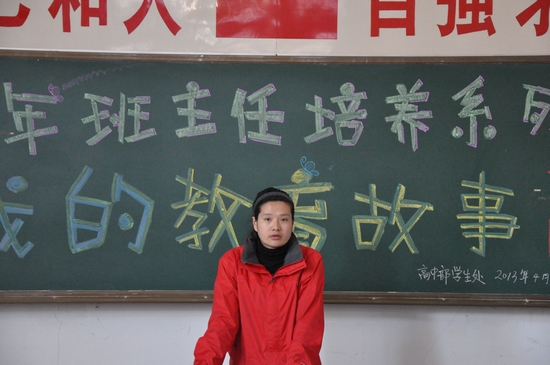 和 自强
年班主任培养系列
我的教育故事
高中部学生处 2013年4月